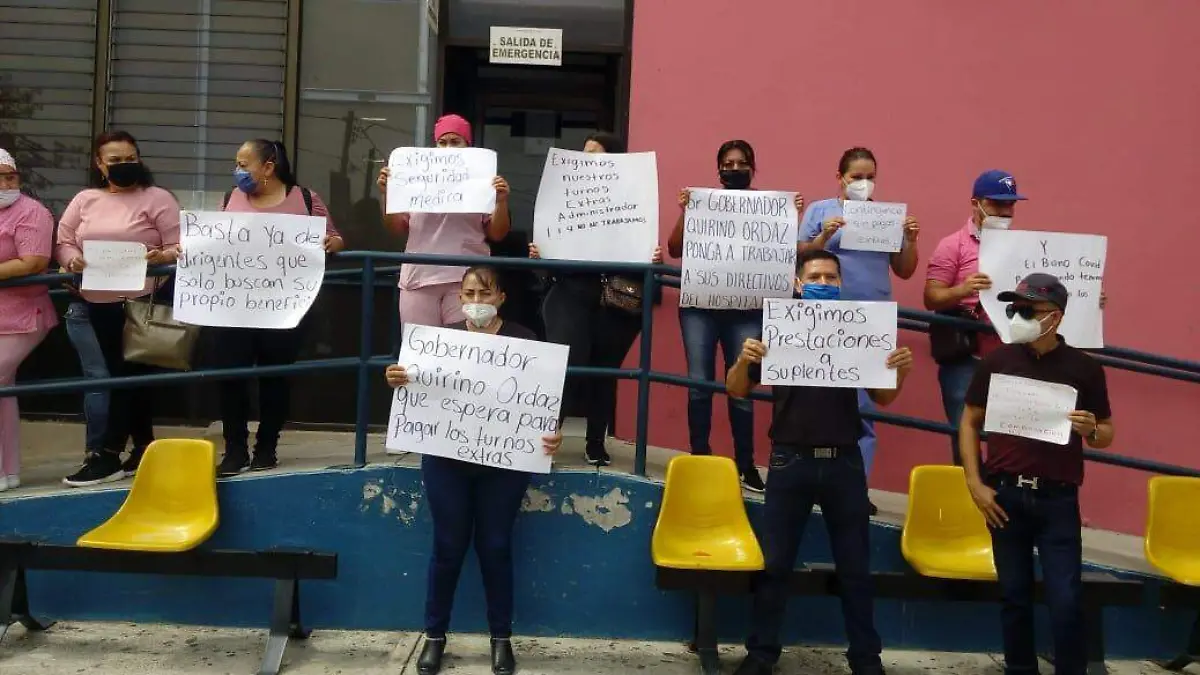 SALIDA DE
EMERGENCIA
Basta Ya de
dirigentes que
solo buscan su
propio benefici
Exigimos
Seguridad
medica
Exigimos
nuestros
turnos
Extras
Administrador
NO TRABAJAMOS
sin pagos
Sr GOBERNADOR
QUIRINO ORDAZ
PONGA A TRABAJAR
A SUS DIRECTIVOS
DEL HOSPITAL
Contingencia
sin pagos
extras
Y
El Bono Covid
Gobernador
Quirino Ordaz
que espera para
Pagar los turnos
extras
Exigimos
Prestaciones
a
Suplentes